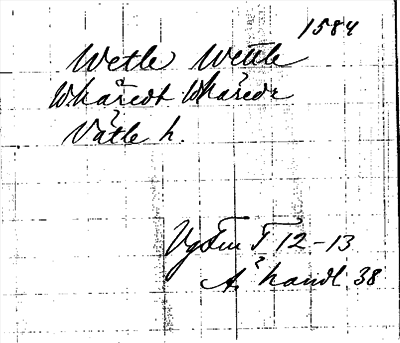 1584
Wetle Wettle
Whåredt Whåredr
Våtle h.
VgFm T 12-13
Å handl. 38